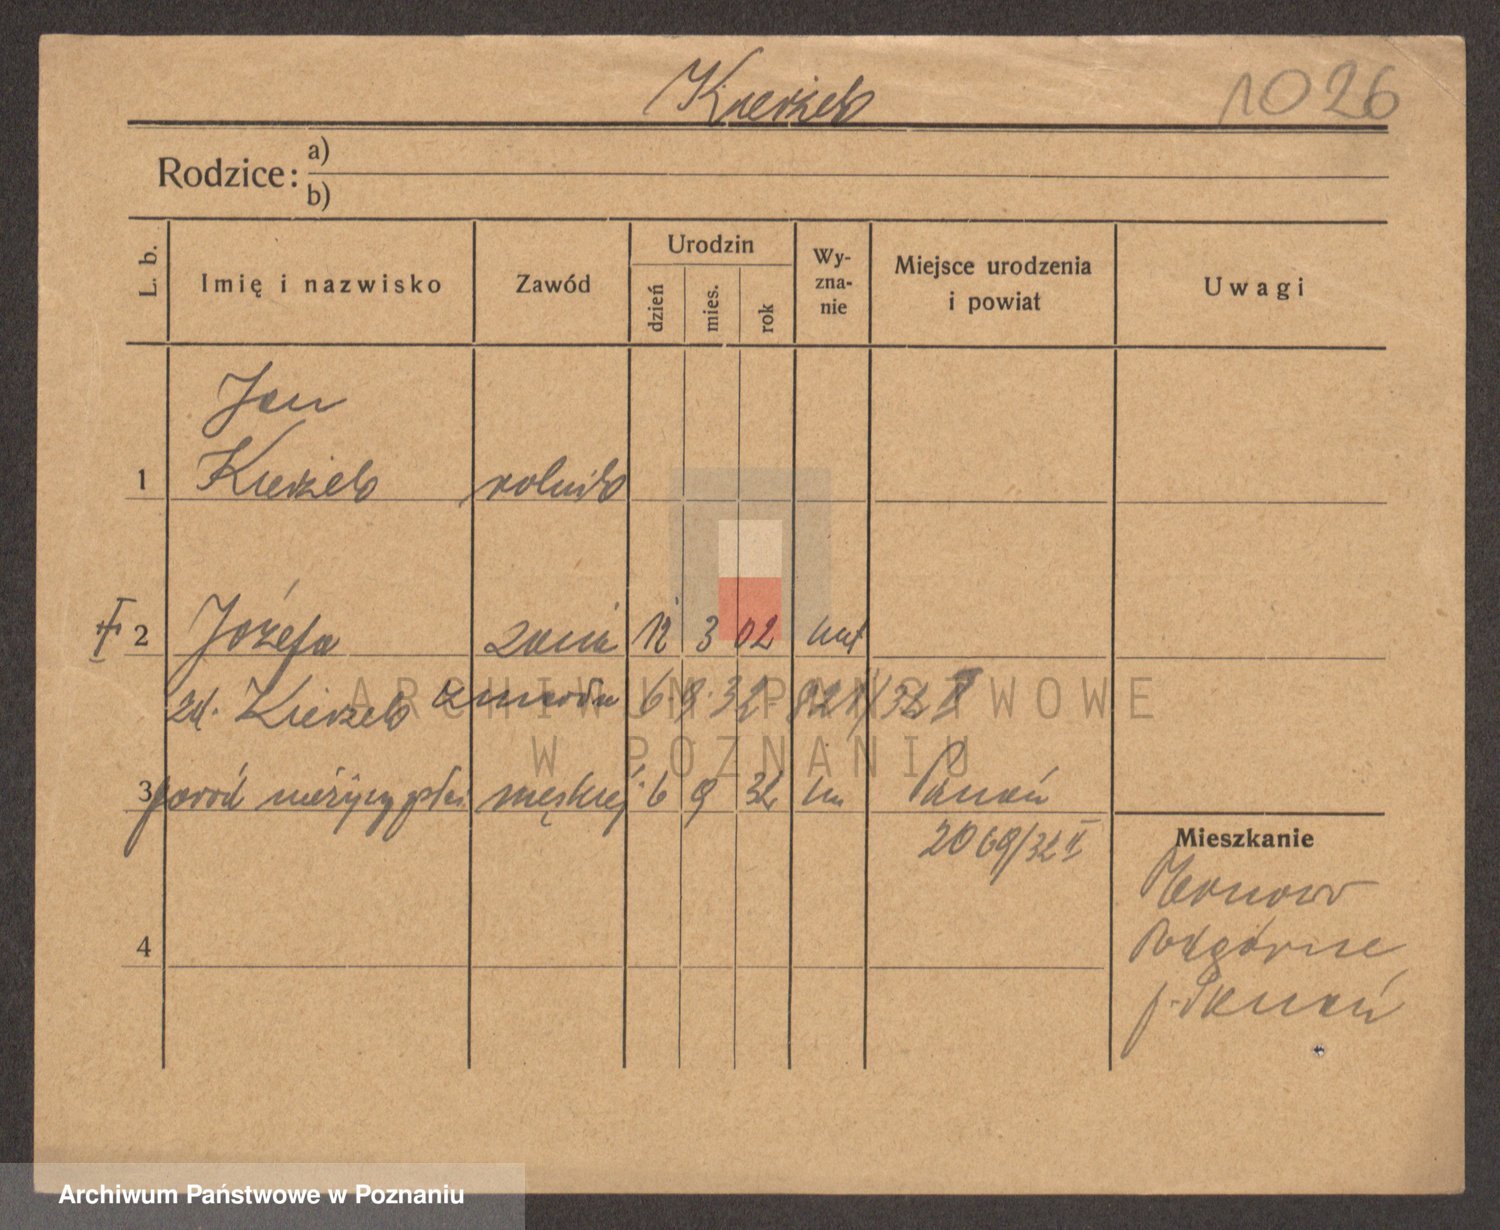 Kierzek 1026
Rodzice: a)
b)
L. b. Imię i nazwisko Zawód Urodzin dzień mies. rok Wy-zna-nie Miejsce urodzenia i powiat Uwagi
Jan
1 Kierzek rolnik
2 Józefa żona 12 3 02 kat
zd. Kierzek zmarła 6. 9. 32. 821/32
3 poród nieżywy płci męskiej 6 9 32 Poznań
2069/32 II
Mieszkanie
Podgórne
4
p. Poznań
ARCHIWUM PAŃSTWOWE
W POZNANIU
Archiwum Państwowe w Poznaniu